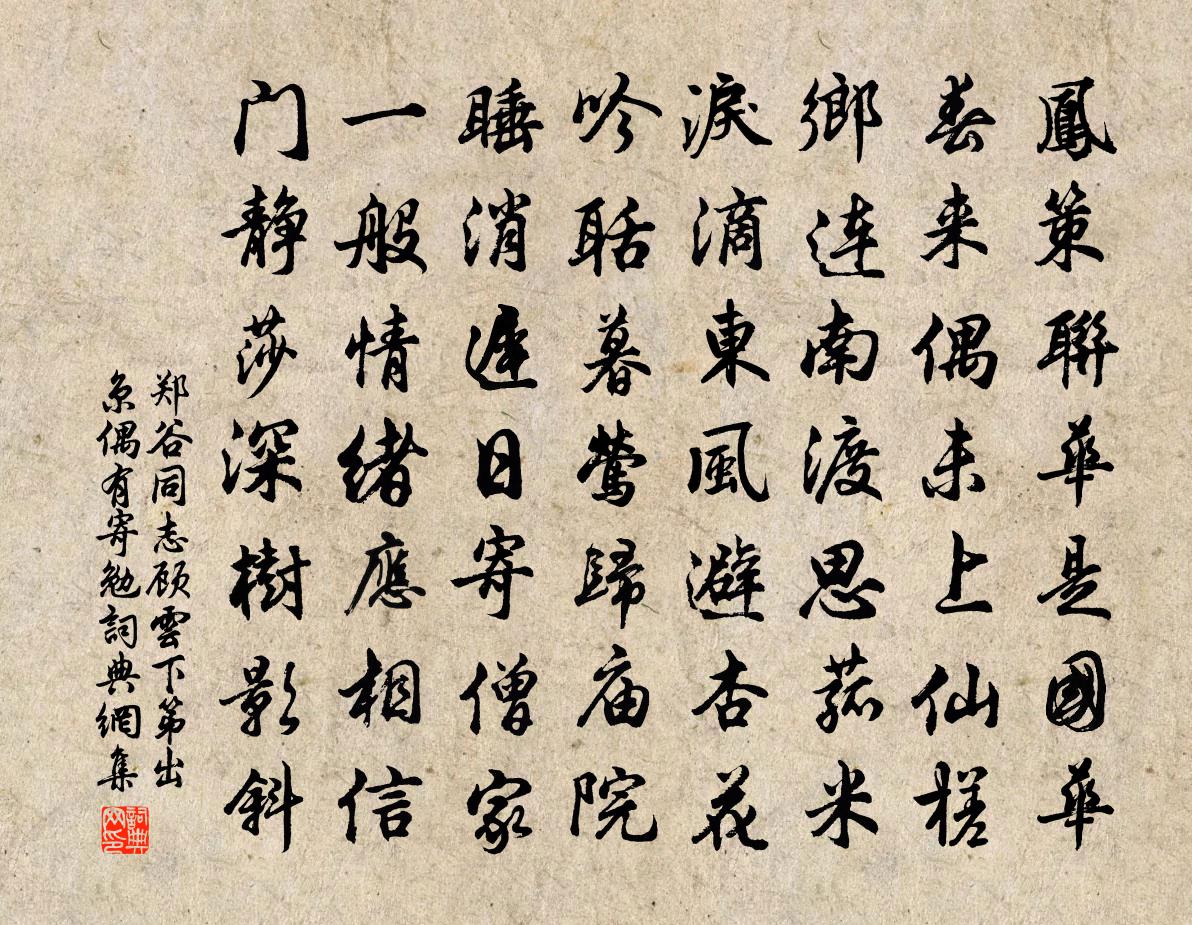 鳳策聯華是國華
春来偶未上仙槎
鄉连南渡思菰米
淚滴東風避杏花
吟聒暮莺歸庙院
睡消遲日寄僧家
一般情绪應相信
门静莎深樹影斜
郑谷同志顾雲下第出
京偶有寄勉詞典網集
詞典
网印